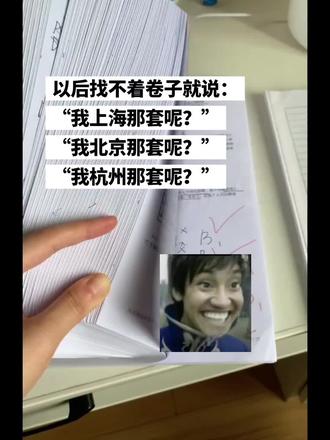 以后找不着卷子就说：
“我上海那套呢？”
“我北京那套呢？”
“我杭州那套呢？”
B